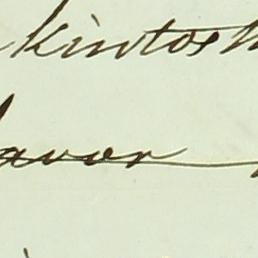 kintosh
avor